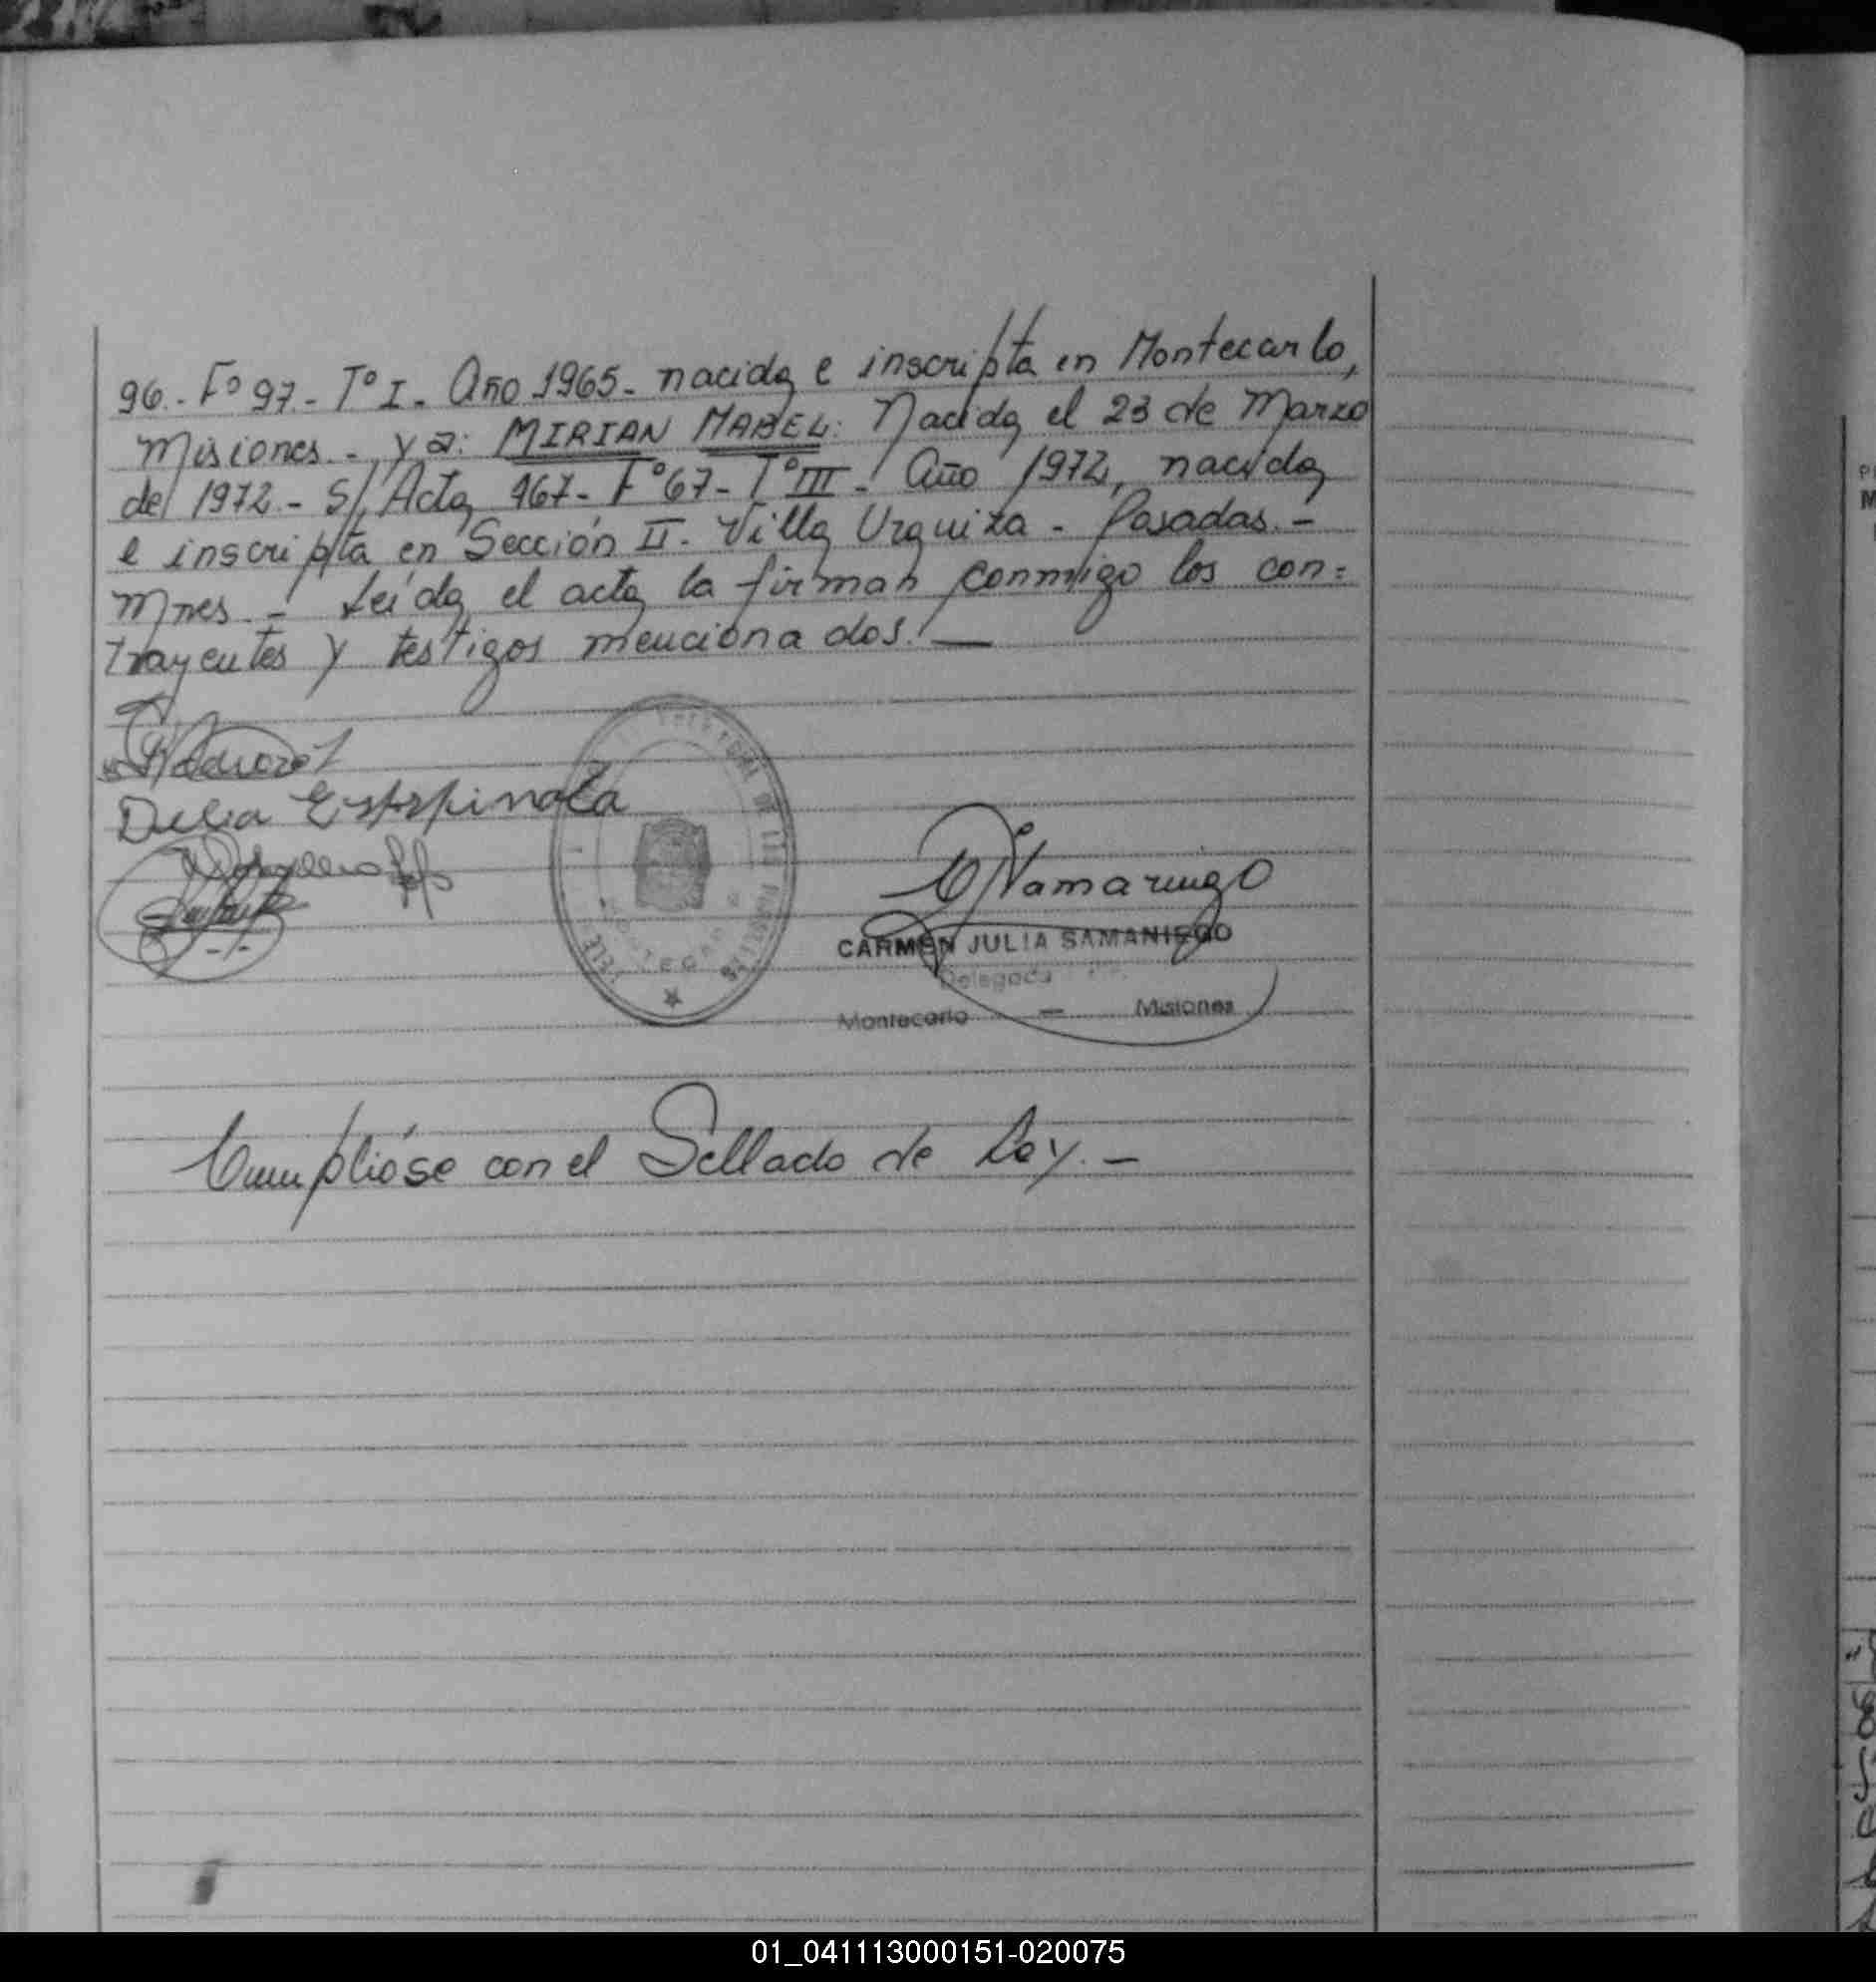 96.- Fº 97.- Tº I.- Año 1965- nacida e inscripta en Montecarlo,
Misiones.- y a: MIRIAN MABEL: Nacida el 23 de Marzo
del 1972.- S/ Acta 467- Fº 67- Tº III- Año 1972, nacida
e inscripta en Sección II- Villa Urquiza - Posadas.-
Mnes.- Leída el acta la firman conmigo los con=
trayentes y testigos mencionados.—
Delia Esppinola
CARMEN JULIA SAMANIEGO
Delegada
Montecarlo — Misiones
Cumplióse con el Sellado de Ley.-
01_041113000151-020075